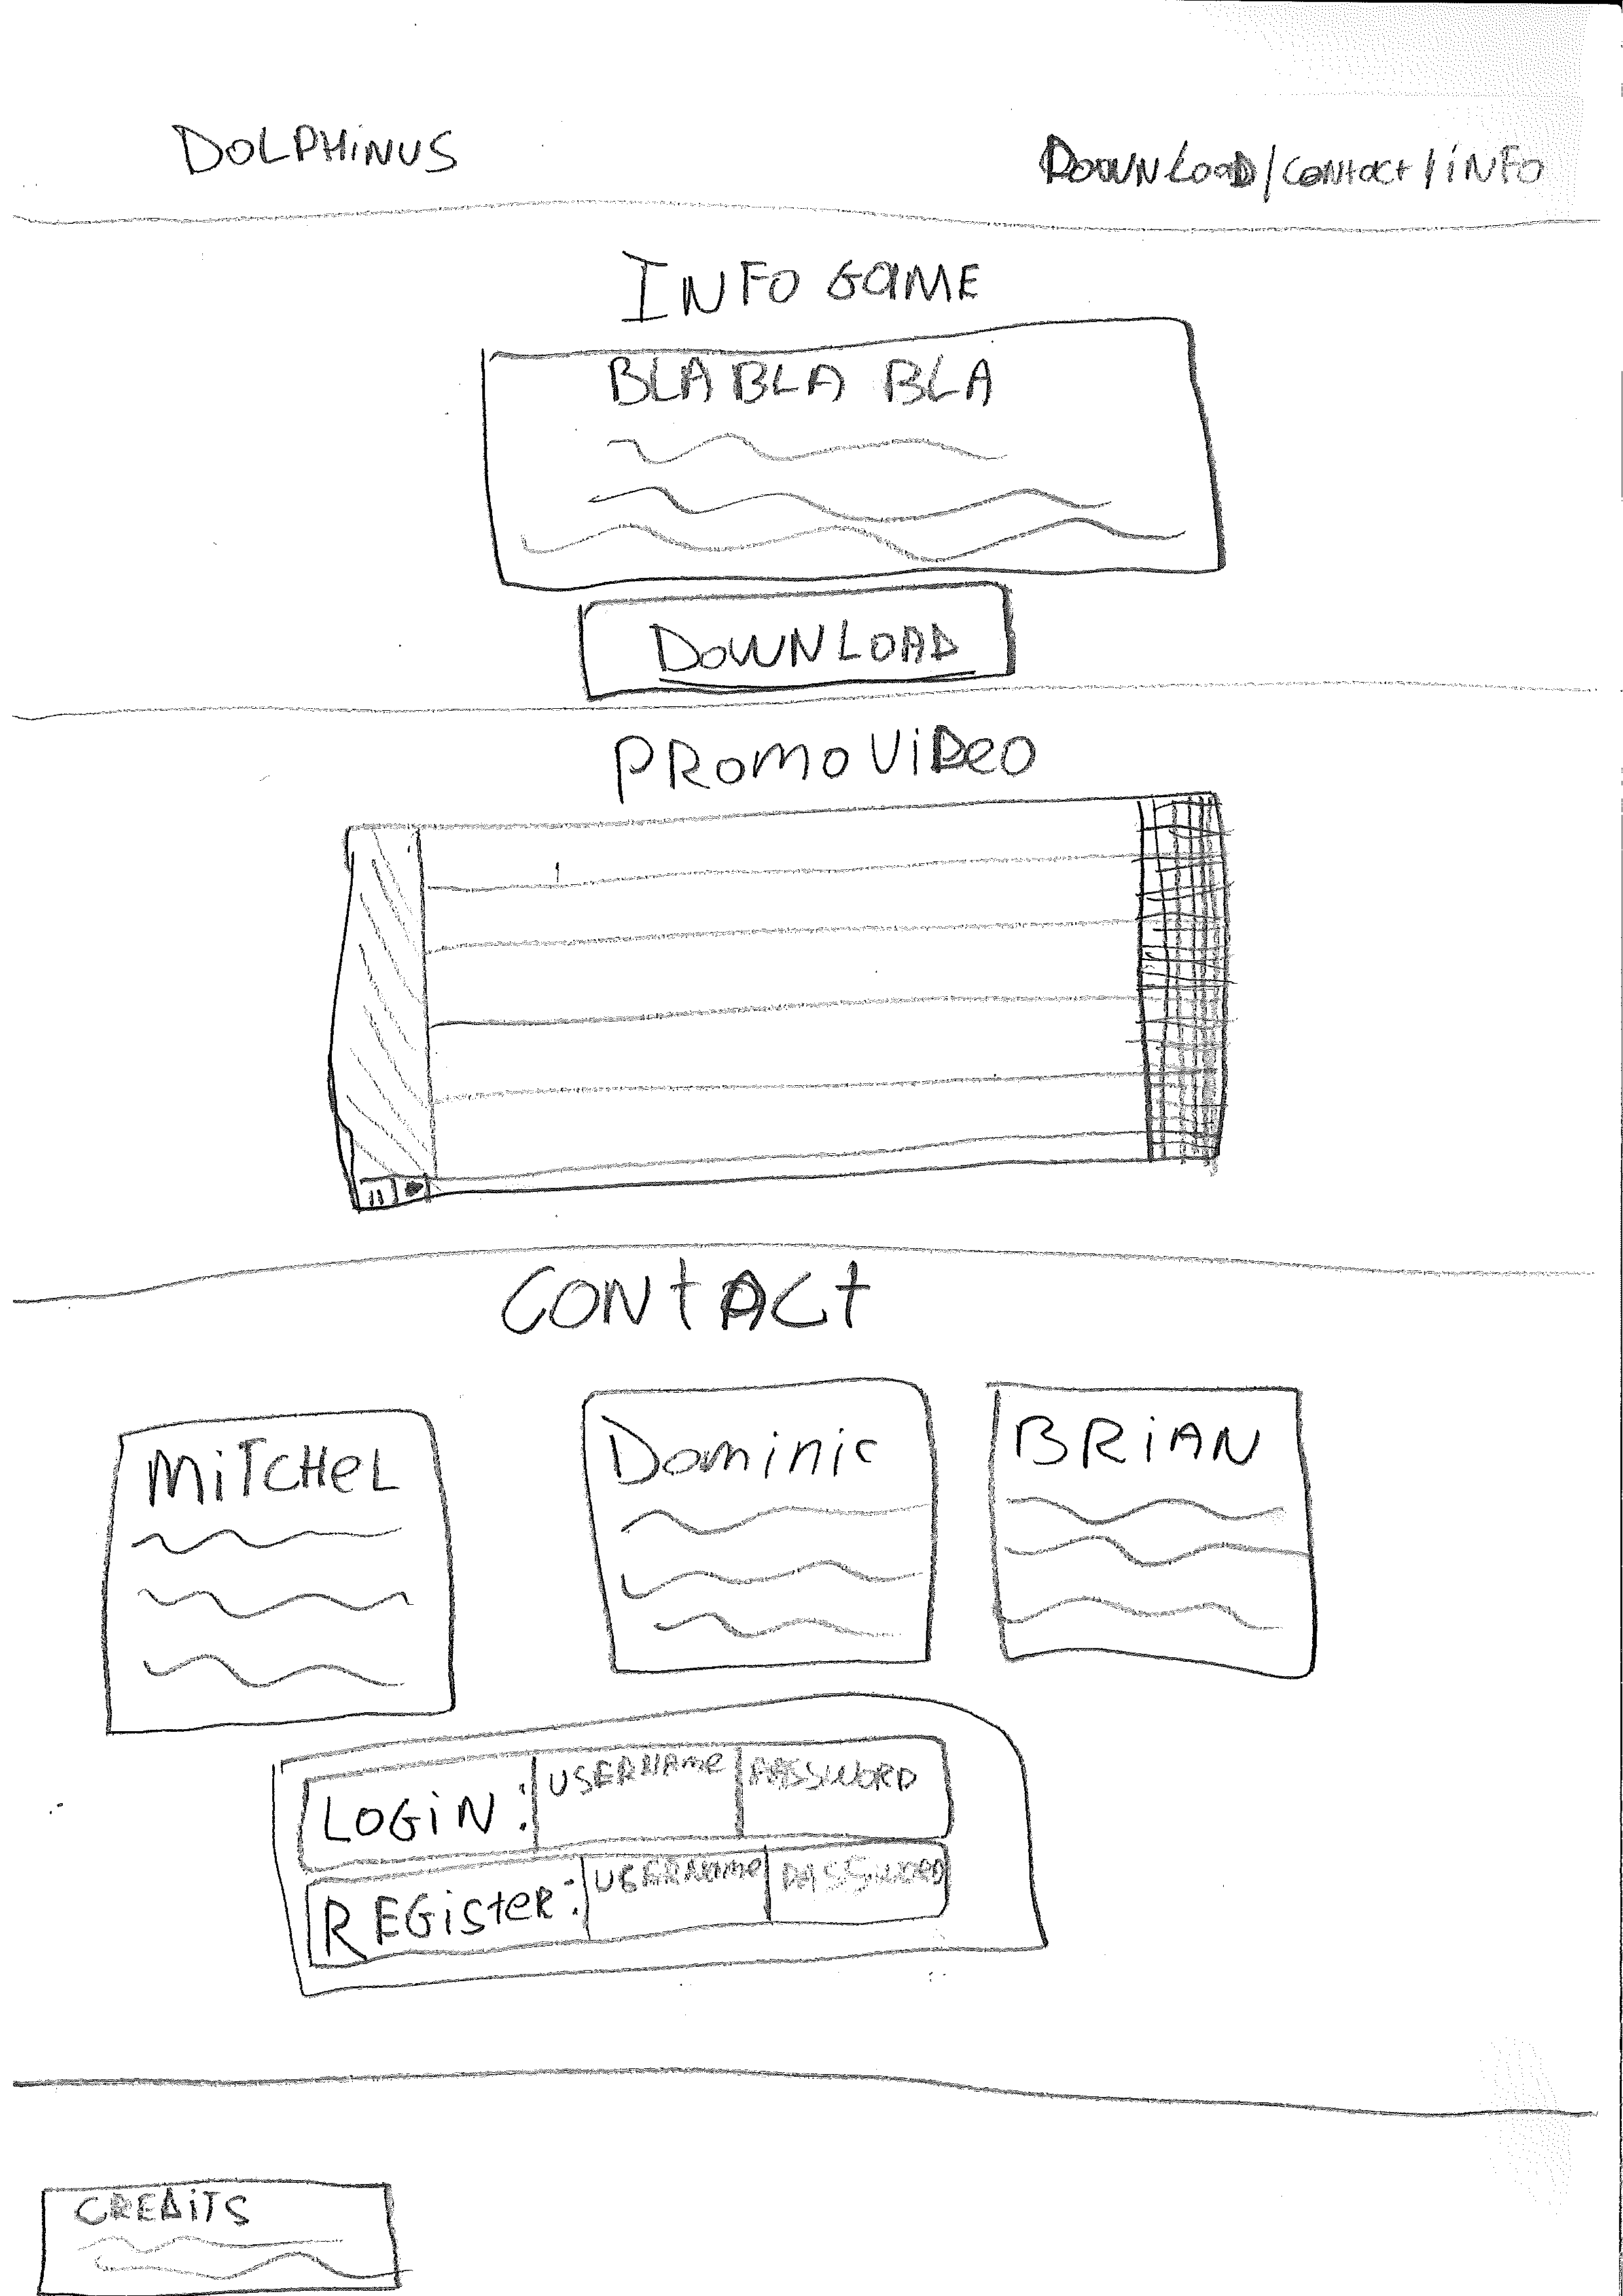 DOLPHiNUS
DOWNLOAD/CONtACt/iNFO
INFO GAME
BLA BLA BLA
DOWNLOAD
PROMO ViDEO
CONtACt
MiTCHeL
Dominic
BRiAN
LOGiN: USERNAMe PASSWORD
REGisteR: USERNAMe PASSWORD
CREDiTS